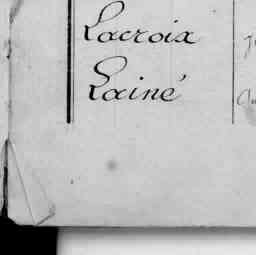 Lacroix
Lainé